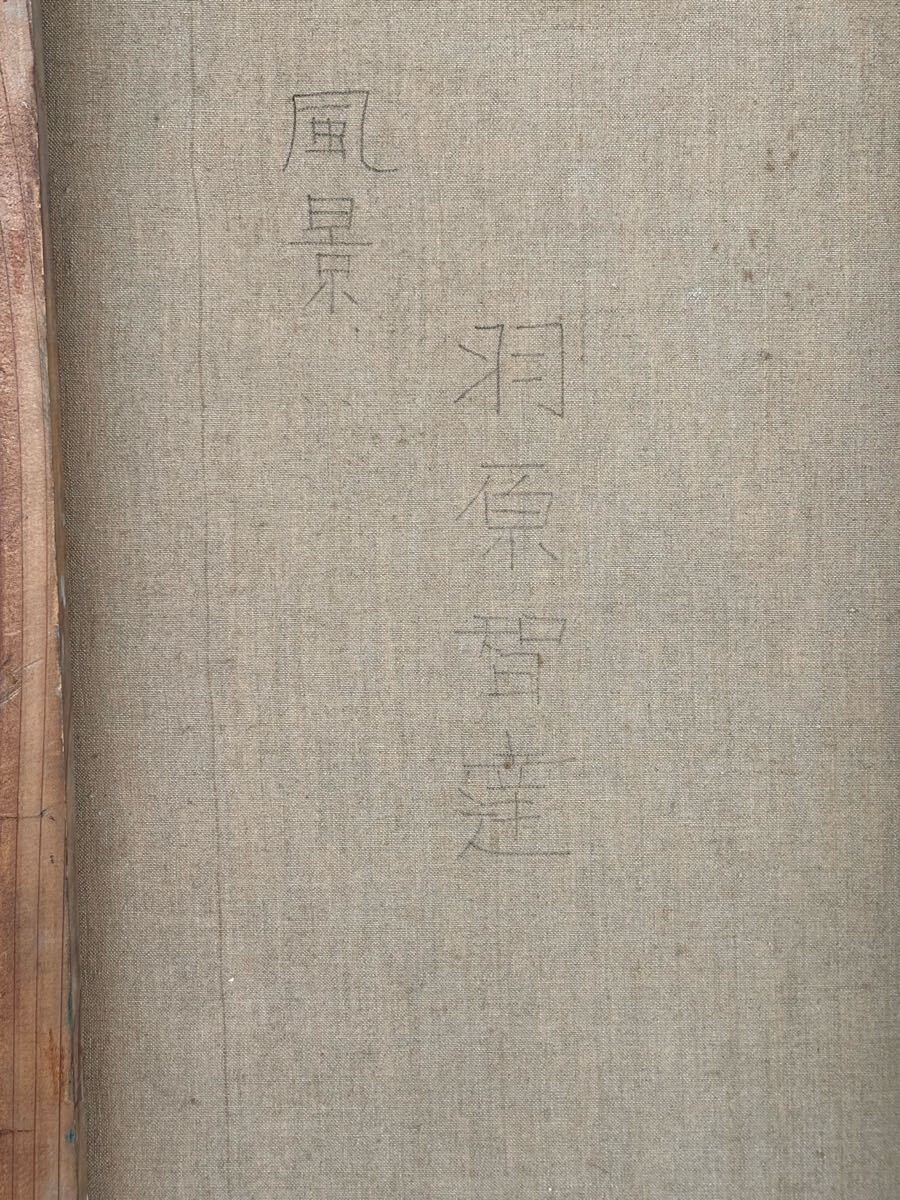 風景
羽原智達